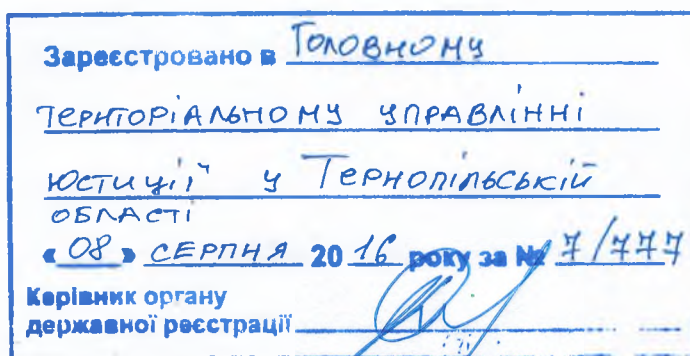 Зареєстровано в Головному
територіальному управлінні
юстиції у Тернопільській
області
«08» серпня 2016 року за № 7/777
Керівник органу
державної реєстрації